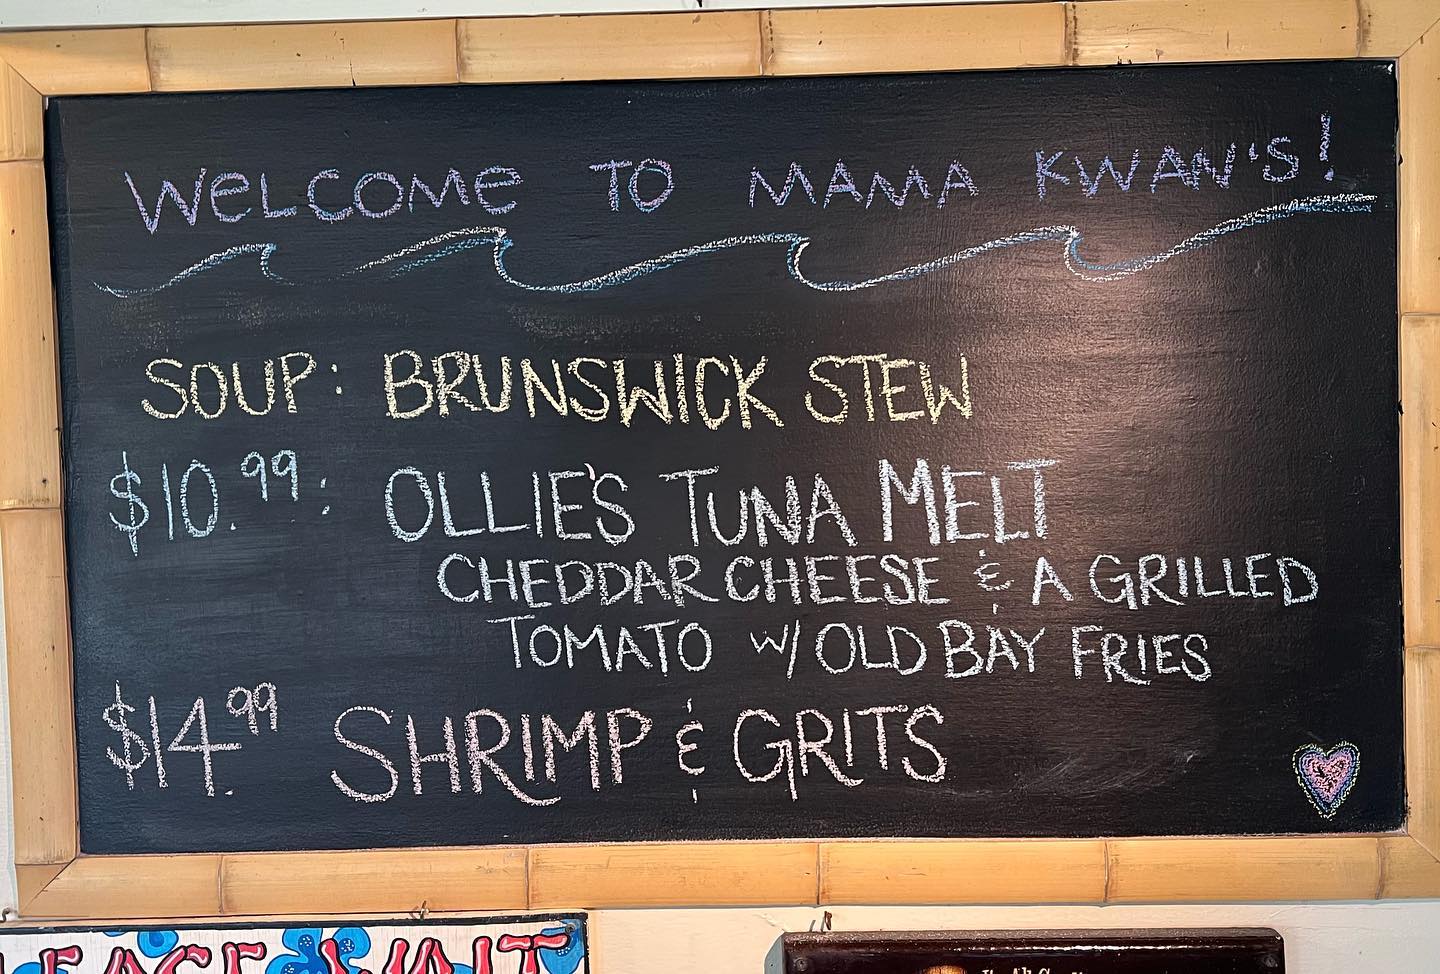 WELCOME TO MAMA KWAN'S!
SOUP: BRUNSWICK STEW
$10.99: OLLIE'S TUNA MELT
CHEDDAR CHEESE & A GRILLED
TOMATO W/ OLD BAY FRIES
$14.99 SHRIMP & GRITS
LEASE WAIT